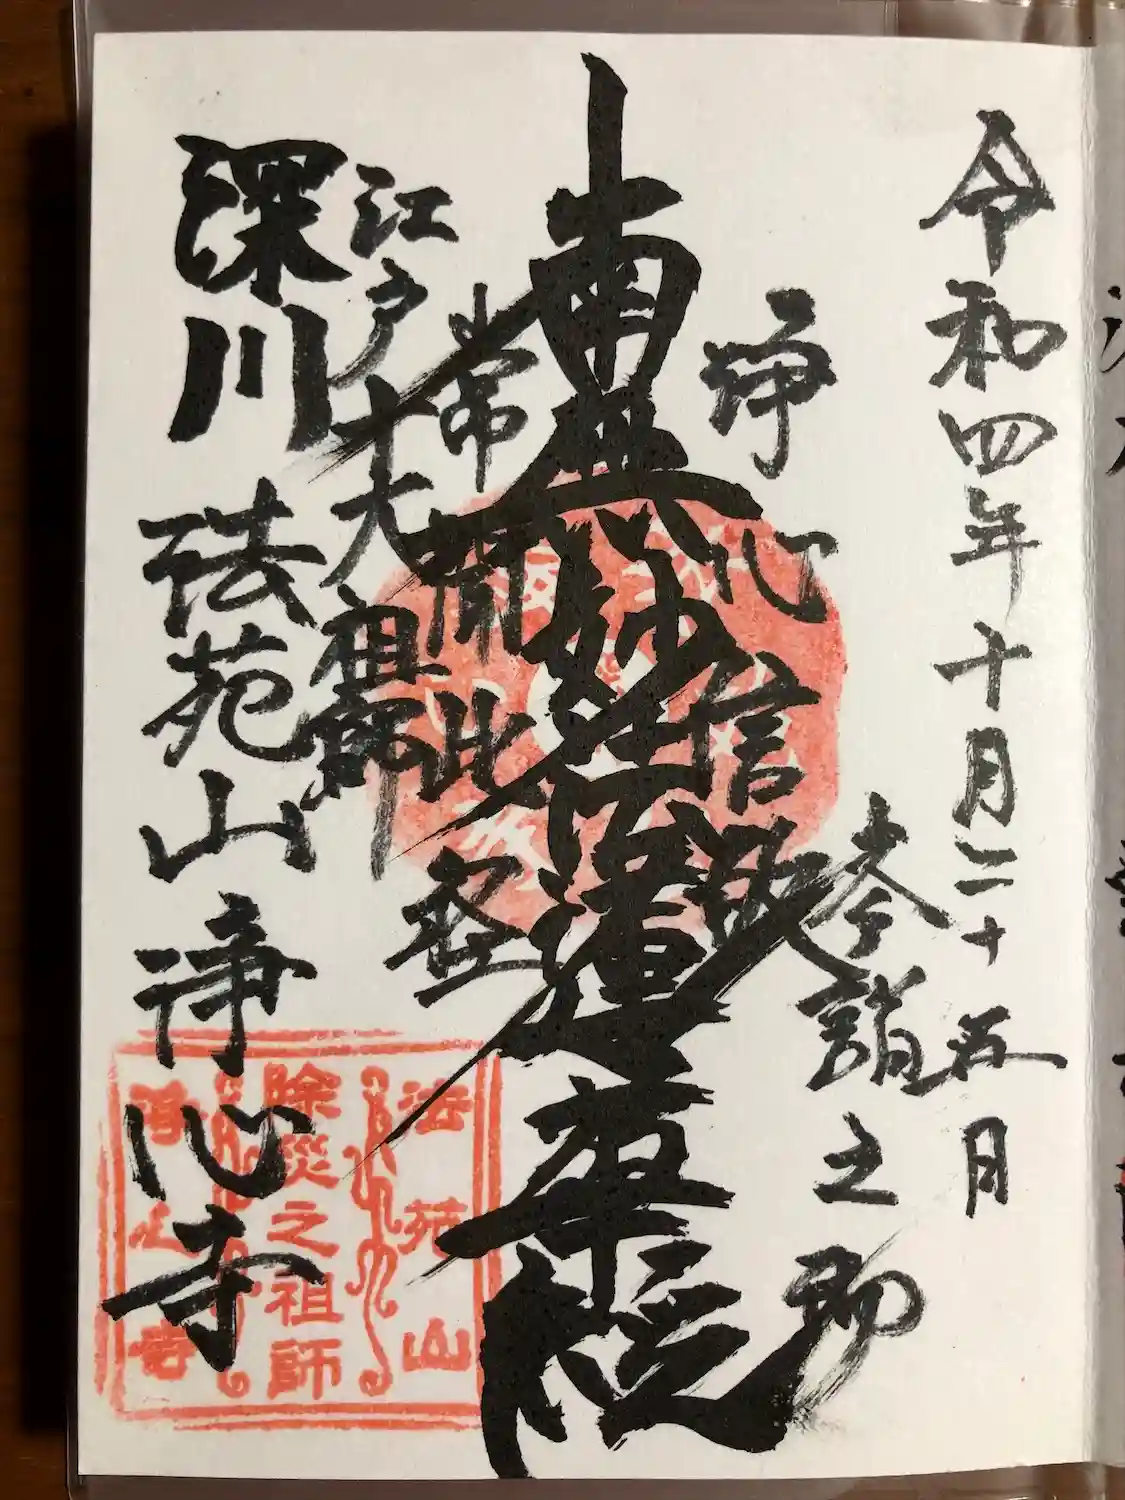 令和四年十月二十五日
奉詣之砌
浄心信敬
南無妙法蓮華経
常聞此経
江戸十大祖師
深川 法苑山浄心寺
法苑山
除災之祖師
浄心寺